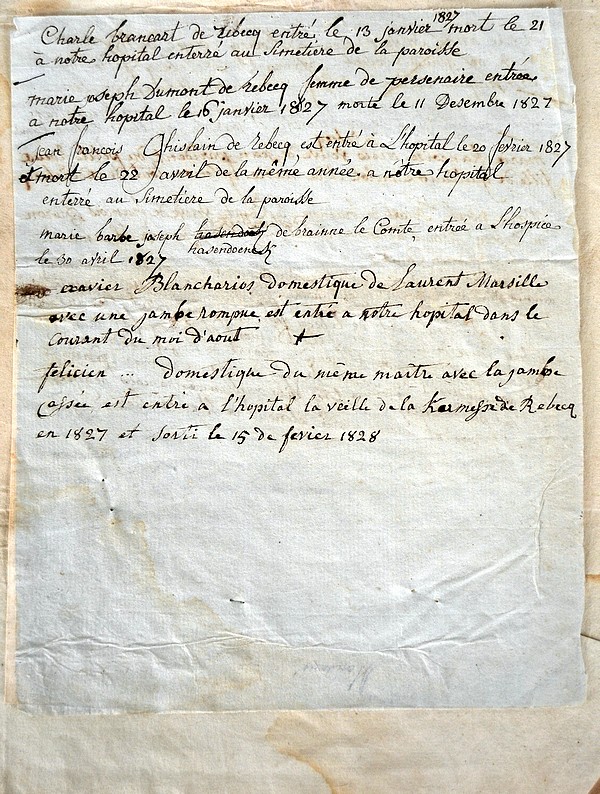 Charle brancart de Rebecq entré le 13 janvier 1827 mort le 21
à notre hopital enterré au Simetiere de la paroisse
marie joseph Dumont de Rebecq femme de persenaire entrée
a notre hopital le 16 janvier 1827 morte le 11 Desembre 1827
jean françois Ghislain de Rebecq est entré à L'hopital le 20 fevrier 1827
et mort le 22 avril de la même année a nôtre hopital
enterré au Simetiere de la paroisse
marie barbe joseph hasendoek de brainne le Comte entrée a L'hospice
hasendoeneck
le 30 avril 1827
exavier Blancharios domestique de Laurent Marsille
avec une jambe rompue est entré a notre hopital dans le
Courant du moi d'aout +
felicien ... domestique du même maitre avec la jambe
Cassée est entré a l'hopital la veille de la Kermesse de Rebecq
en 1827 et Sorti le 15 de fevier 1828